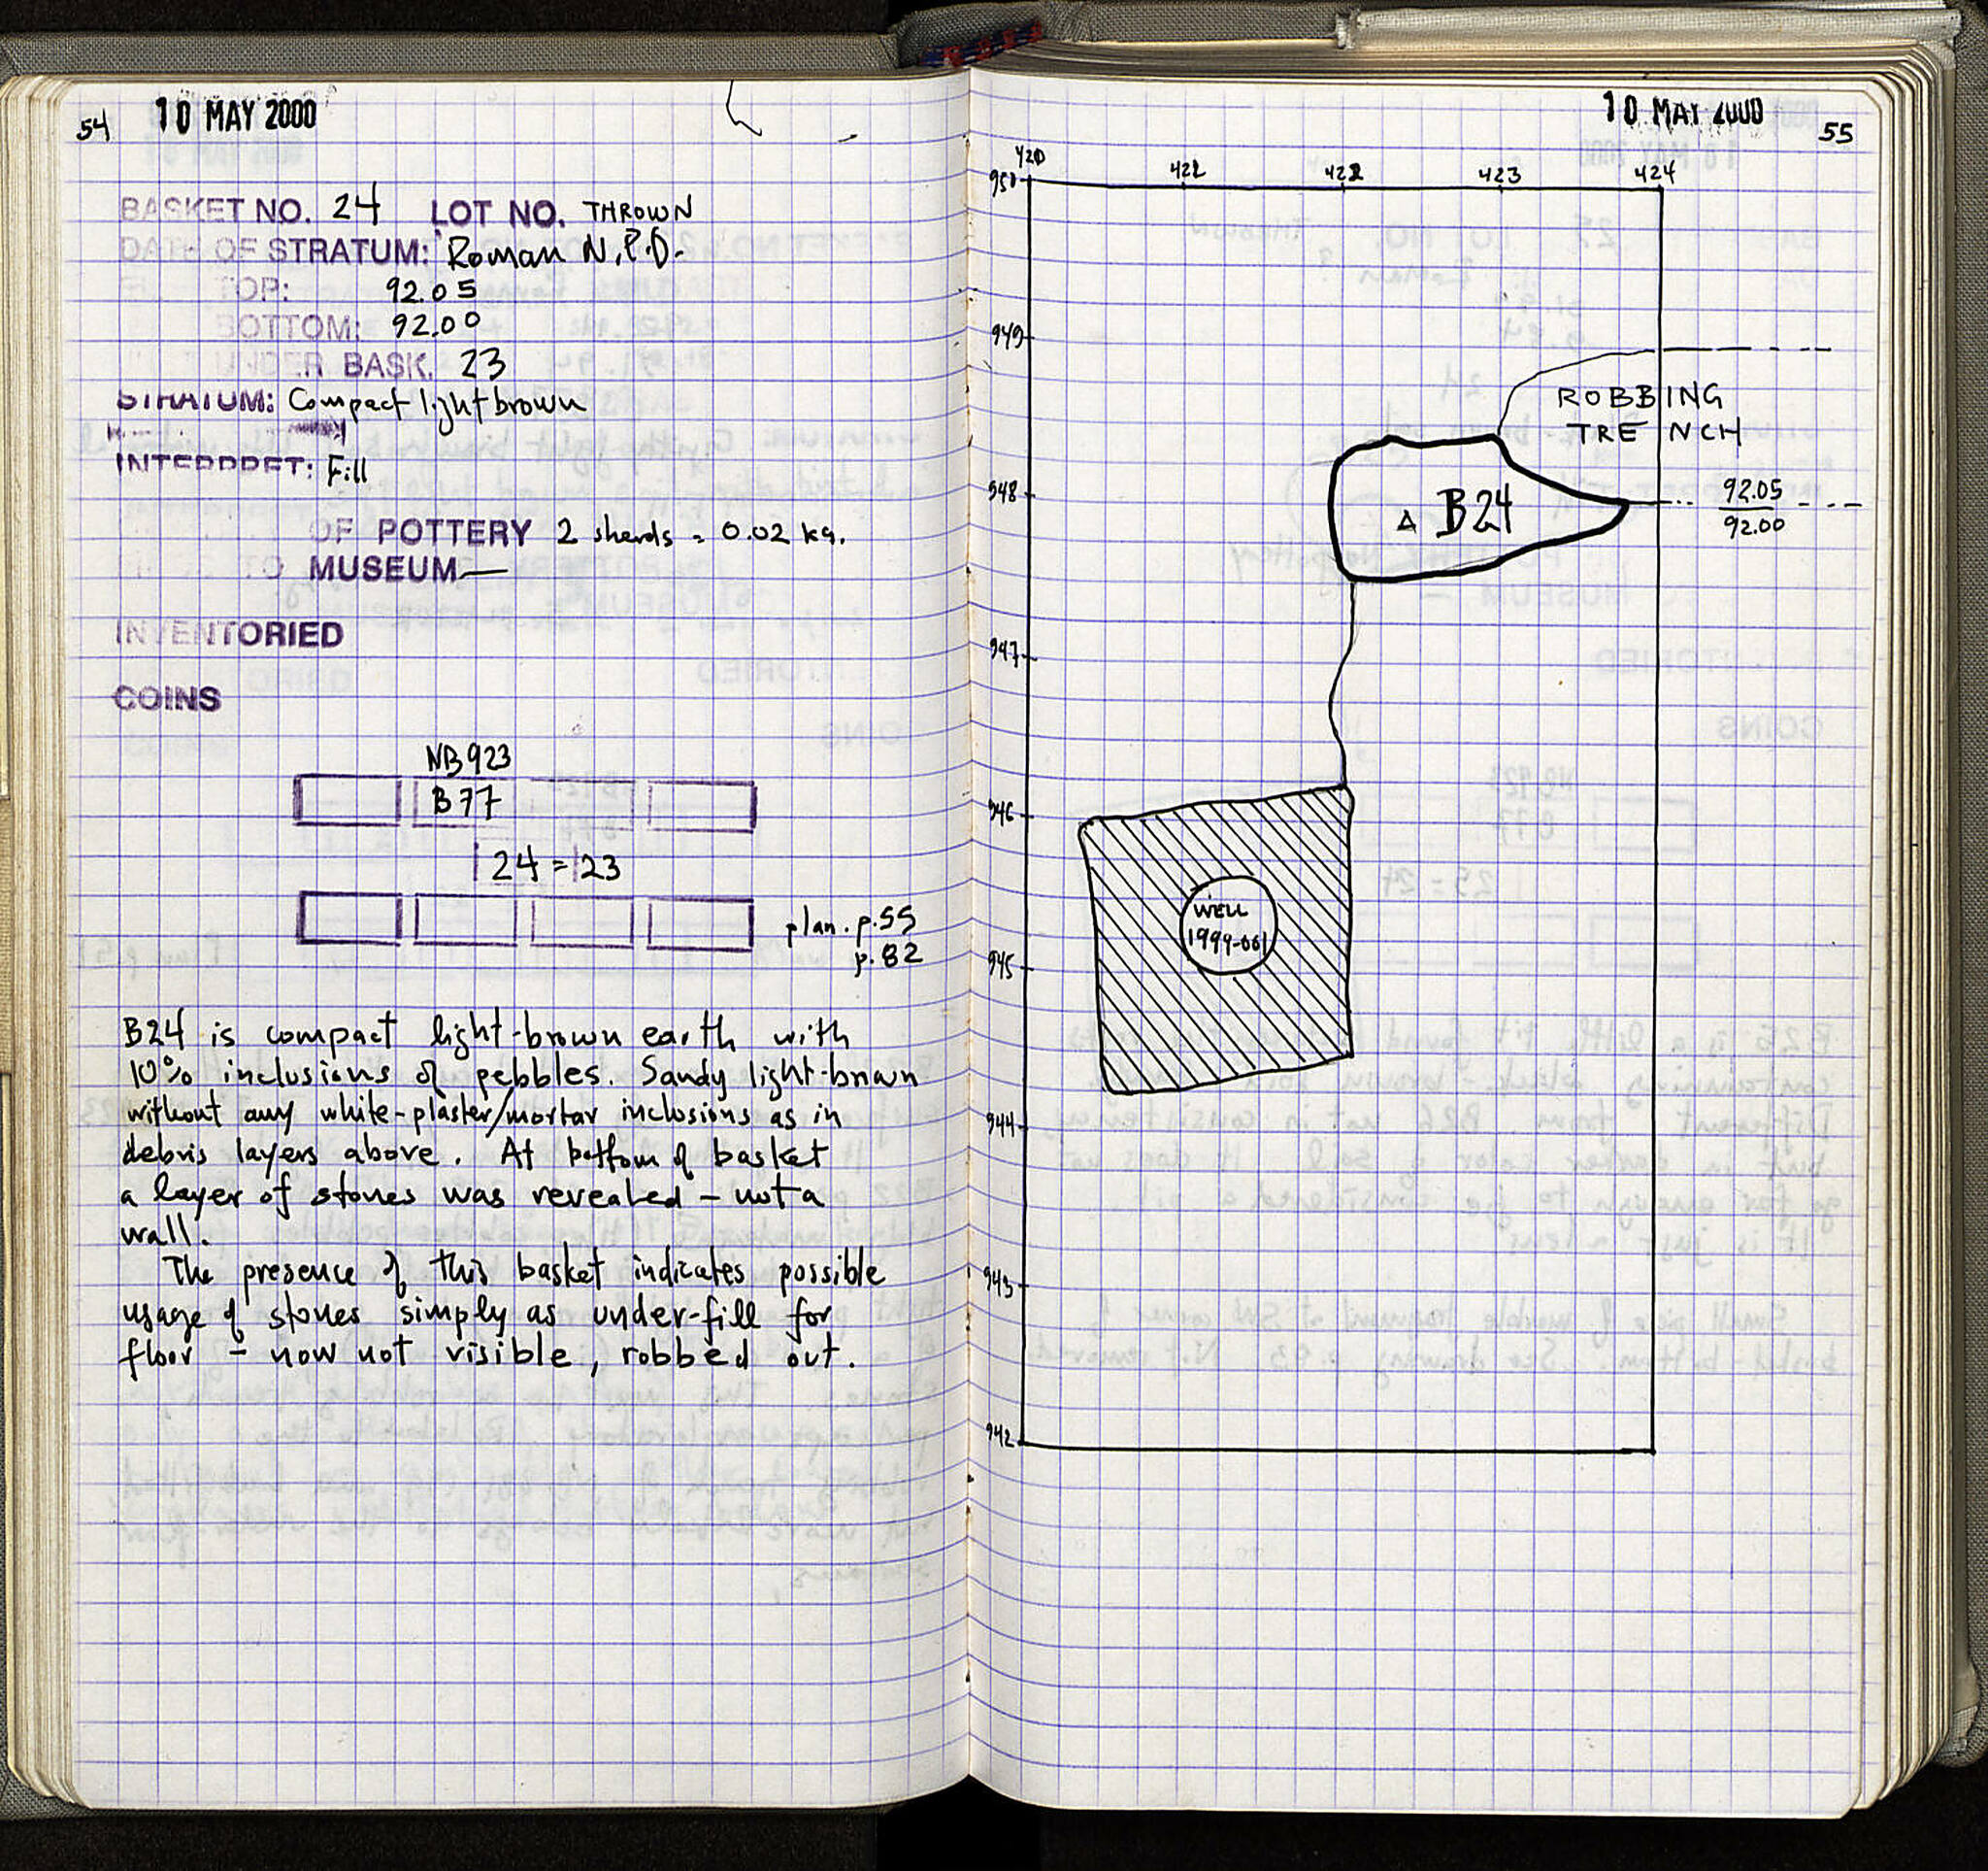 54
10 MAY 2000
BASKET NO. 24 LOT NO. THROWN
DATE OF STRATUM: Roman N.P.D.
TOP: 92.05
BOTTOM: 92.00
UNDER BASK. 23
STRATUM: Compact light brown
INTERPRET: Fill
OF POTTERY 2 sherds = 0.02 kg.
TO MUSEUM —
INVENTORIED
COINS
NB 923
B77
24 = 23
plan. p.55
p.82
B24 is compact light-brown earth with
10% inclusions of pebbles. Sandy light-brown
without any white-plaster/mortar inclusions as in
debris layers above. At bottom of basket
a layer of stones was revealed – not a
wall.
The presence of this basket indicates possible
usage of stones simply as under-fill for
floor – now not visible, robbed out.
10 MAY 2000
55
420 422 423 424
950
949
948
947
946
945
944
943
942
ROBBING
TRENCH
△ B24
92.05
92.00
WELL
1999-001